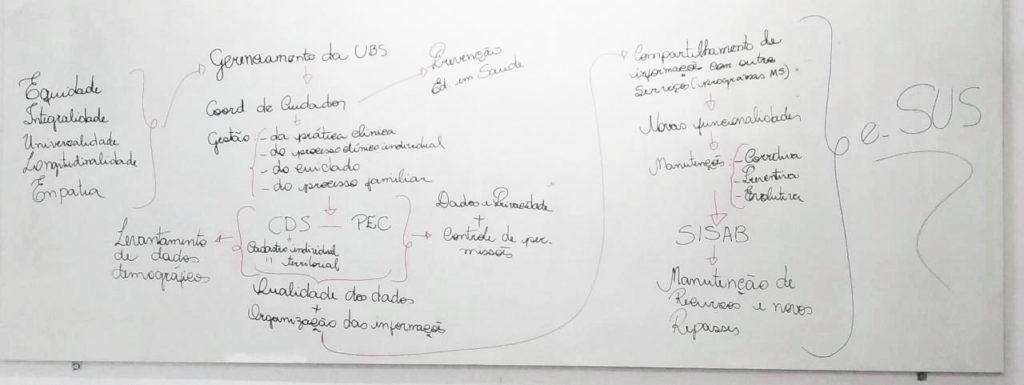 Equidade
Integralidade
Universalidade
Longitudinalidade
Empatia
Gerenciamento da UBS
Coord de Cuidados
Prevenção
Ed em Saúde
Gestão - da prática clínica
- do processo clínico individual
- do cuidado
- do processo familiar
CDS — PEC
Cadastro individual
" territorial
Levantamento
de dados
demográficos
Dados e Privacidade
+
Controle de per-
missões
Qualidade dos dados
+
Organização das informações
Compartilhamento de
informações com outro
Serviços (programas MS).
Novas funcionalidades
Manutenção: - Corretiva
- Preventiva
- Evolutiva
SISAB
Manutenção de
Recursos e novos
Repasses
e-SUS